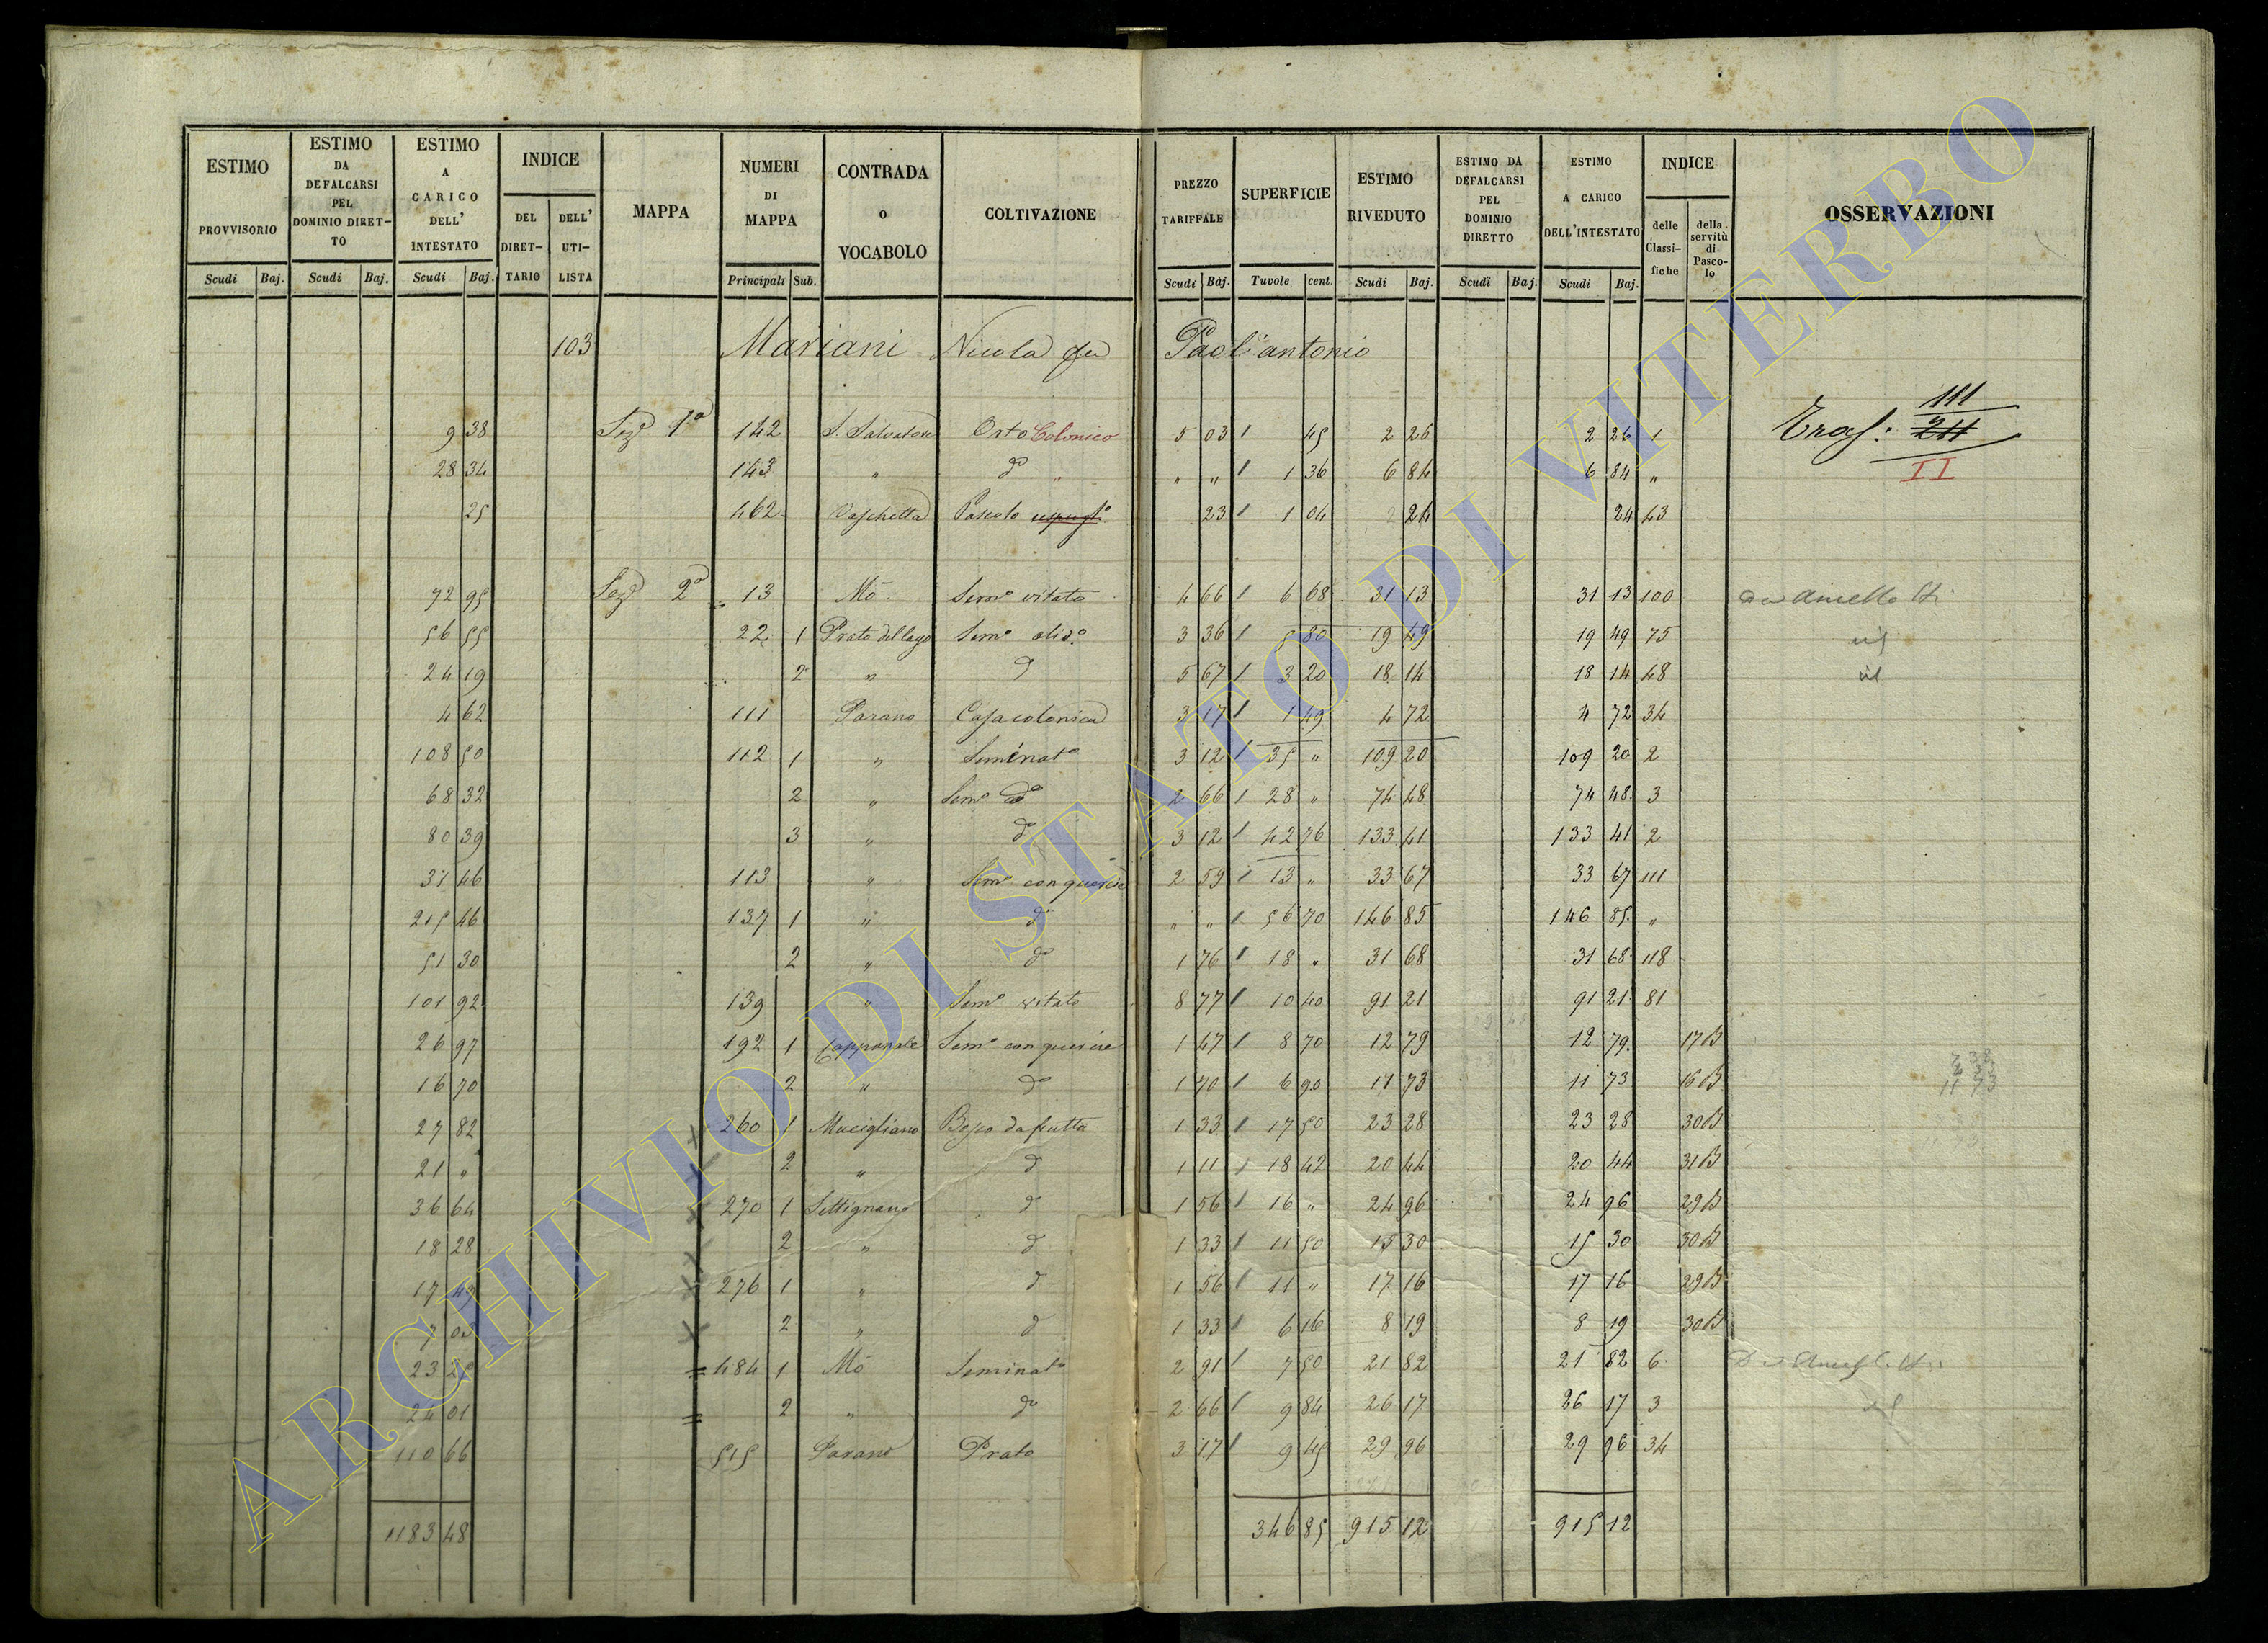 ESTIMO PROVVISORIO Scudi Baj.
ESTIMO DA DEFALCARSI PEL DOMINIO DIRET-TO Scudi Baj.
ESTIMO A CARICO DELL' INTESTATO Scudi Baj.
INDICE DEL DIRET-TARIO DELL' UTI-LISTA
MAPPA
NUMERI DI MAPPA Principali Sub.
CONTRADA O VOCABOLO
COLTIVAZIONE
PREZZO TARIFFALE Scudi Baj.
SUPERFICIE Tavole cent.
ESTIMO RIVEDUTO Scudi Baj.
ESTIMO DA DEFALCARSI PEL DOMINIO DIRETTO Scudi Baj.
ESTIMO A CARICO DELL'INTESTATO Scudi Baj.
INDICE delle Classi-fiche della servitù di Pasco-lo
OSSERVAZIONI
103 Mariani Nicola Paol'antonio
111
9 38 Sez.e 1a 142 S. Salvatore Orto Colonico 5 03 45 2 26 2 26 1 Tras: 211
28 34 143 " do " " " 1 36 6 84 6 84 " II
25 462 Vaschetta Pascolo 23 1 04 24 24 43
72 95 Sez.e 2a 13 Mô Sem.o vitato 4 66 6 68 31 13 31 13 100
56 55 22 1 Prato del lago Sem.o oliv.o 3 36 5 80 19 49 19 49 75
24 19 2 " d 5 67 3 20 18 14 18 14 48
4 62 111 Parano Casa colonica 3 17 1 49 4 72 4 72 34
108 50 112 1 " Seminato 3 12 35 " 109 20 109 20 2
68 32 2 " Sem.o do 2 66 28 " 74 48 74 48 3
80 39 3 " do 3 12 42 76 133 41 133 41 2
31 46 113 " Sem.o con quercie 2 59 13 " 33 67 33 67 111
215 46 137 1 " d " " 56 70 146 85 146 85 "
51 30 2 " do 1 76 18 " 31 68 31 68 118
101 92 139 " Sem.o vitato 8 77 10 40 91 21 91 21 81
26 97 192 1 Sem.o con quercie 1 47 8 70 12 79 12 79 17B
16 70 2 " do 1 70 6 90 11 73 11 73 16B 11 73
27 82 260 1 Mucigliano Bosco da frutto 1 33 17 50 23 28 23 28 30B
21 " 2 " d 1 11 18 42 20 44 20 44 31B
36 64 270 1 Settignano d 1 56 16 " 24 96 24 96 29B
18 28 2 " d 1 33 11 50 15 30 15 30 30B
17 276 1 " d 1 56 11 " 17 16 17 16 29B
7 2 " d 1 33 6 16 8 19 8 19 30B
23 484 1 Mô Seminato 2 91 7 50 21 82 21 82 6
24 01 2 " do 2 66 9 84 26 17 26 17 3
110 66 515 Parano Prato 3 17 9 45 29 96 29 96 34
1183 48 346 85 915 12 915 12
ARCHIVIO DI STATO DI VITERBO